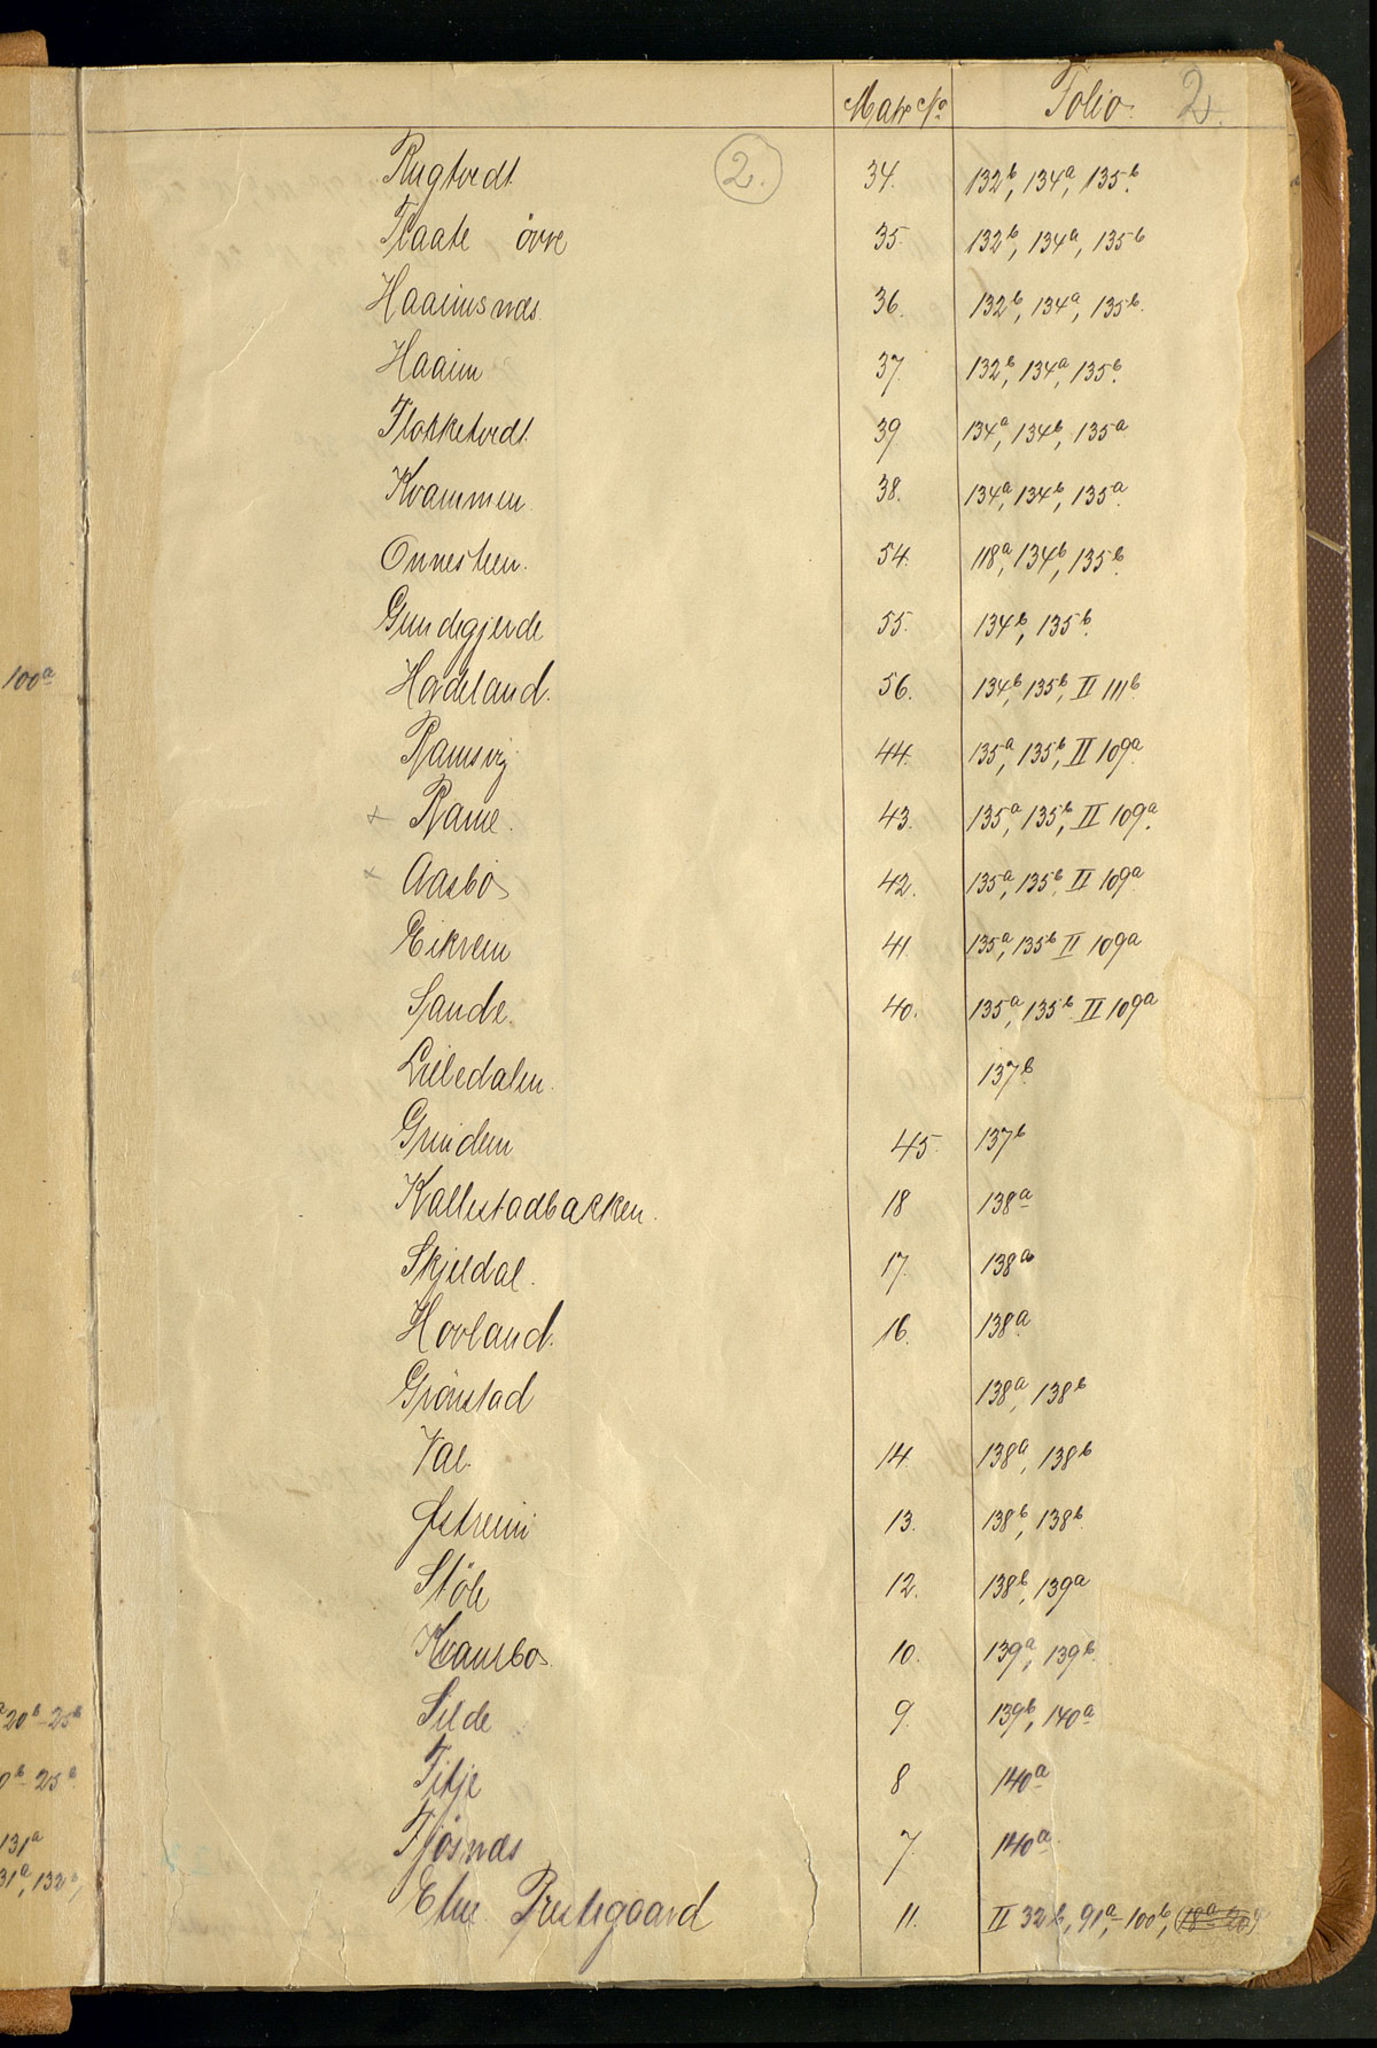 Matr No Folio. 2.
2.
Rugtvedt. 34. 132b, 134a, 135b.
Flaate övre 35. 132b, 134a, 135b
Haaimsnæs. 36. 132b, 134a, 135b.
Haaim 37. 132b, 134a, 135b.
Flokketvedt. 39 134a, 134b, 135a
Kvammen. 38. 134a, 134b, 135a.
Onnesteen. 54. 118a, 134b, 135b.
Gundegjerde 55. 134b, 135b.
Hordeland. 56. 134b, 135b, II 111b
Ramsvig 44. 135a, 135b, II 109a.
x Rame. 43. 135a, 135b, II 109a.
x Aasbö 42. 135a, 135b, II 109a
Eikrem 41 135a, 135b II 109a
Sande. 40. 135a, 135b II 109a
Liledalen. 137b.
Grindem 45. 137b
Kallestadbakken. 18 138a
Skjeldal. 17. 138a
Hovland. 16. 138a.
Grönstad 138a, 138b
Val. 14. 138a, 138b
Østreim 13. 138b, 138b.
Stöle 12. 138b, 139a
Kvamsbö. 10. 139a, 139b.
Silde 9. 139b, 140a
Fitje 8 140a
Fjösnæs 7. 140a.
Etne Prestegaard 11. II 32b, 91a-100b,
100a
20b-25b
25b
131a
31a, 132b,